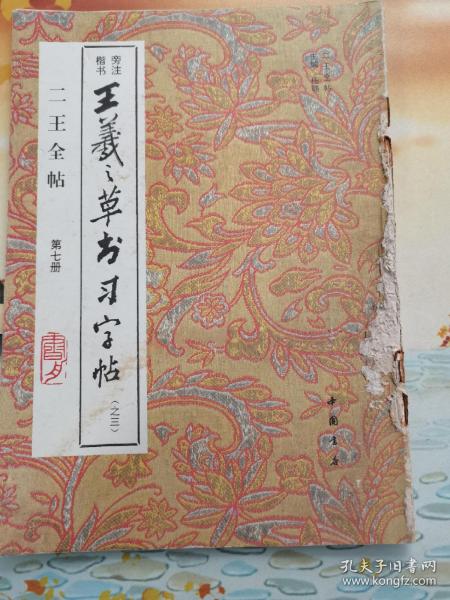 楷书旁注
王羲之草书习字帖
〈之三〉
二王全帖
第七册
中国书店
孔夫子旧书网
www.kongfz.com